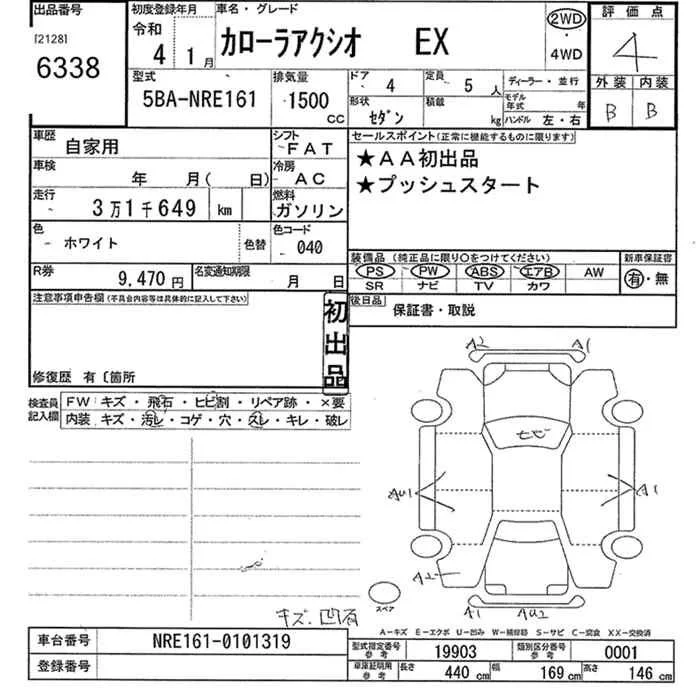 出品番号
[2128]
6338
初度登録年月
令和
4 1月
車名・グレード
カローラアクシオ EX
2WD
・
4WD
評価点
4
外装 内装
B B
型式
5BA-NRE161
排気量
1500
CC
ドア 4
定員 5人
形状 セダン
積載 kg
ディーラー・並行
モデル年式 年
ハンドル 左・右
車歴 自家用
シフト FAT
車検 年 月( 日)
冷房 AC
走行 3万1千649 km
燃料 ガソリン
色 ホワイト
色替
色コード 040
R券 9,470円
名変通知期限 月 日
セールスポイント(正常に機能するものに限ります)
★AA初出品
★プッシュスタート
装備品 (純正品に限り○をつけてください)
新車保証書
PS PW ABS エアB AW
SR ナビ TV カワ
有・無
後日品
保証書・取説
注意事項申告欄(不具合内容等は具体的に記入して下さい)
初出品
修復歴 有〔箇所
検査員記入欄
FW キズ・飛石・ヒビ割・リペア跡・×要
内装 キズ・汚レ・コゲ・穴・スレ・キレ・破レ
A2 A1
ヒビ
AU1 A1
A2
スペア
A1 AU2
キズ、凹有
A-キズ E-エクボ U-凹み W-補修跡 S-サビ C-腐食 XX-交換済
車台番号 NRE161-0101319
登録番号
型式指定番号参考 19903
類別区分番号参考 0001
車庫証明用参考 長さ 440cm 幅 169cm 高さ 146cm